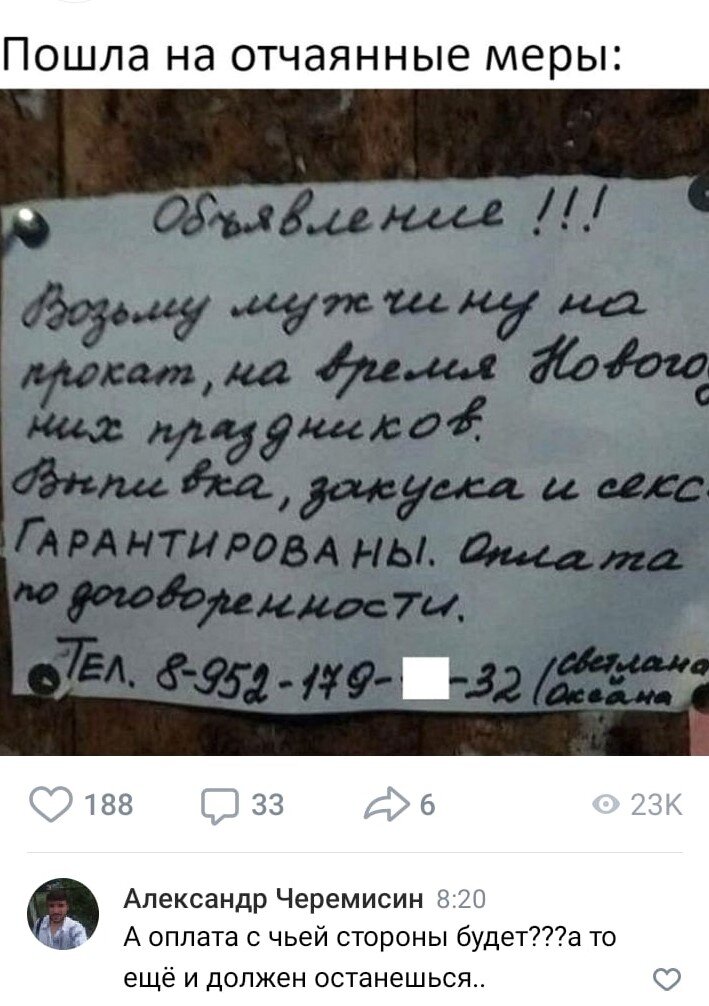 Пошла на отчаянные меры:
Объявление !!!
Возьму мужчину на
прокат, на время Новогод
них праздников.
Выпивка, закуска и секс
ГАРАНТИРОВАНЫ. Оплата
по договоренности.
ТЕЛ. 8-952-179- -32 (Светлана
(Океана
188 33 6 23K
Александр Черемисин 8:20
А оплата с чьей стороны будет???а то
ещё и должен останешься..